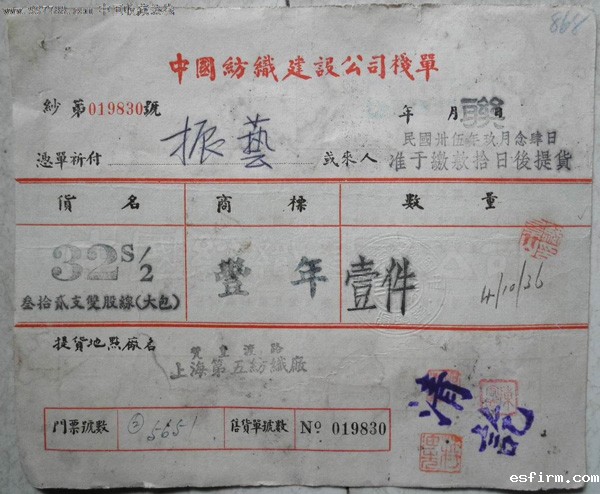 868
中國紡織建設公司棧單
紗 第019830號
年 月 日
民國卅伍年玖月念肆日
憑單祈付 振藝 或來人 准于繳款拾日後提貨
貨名 商標 數量
32S/2 豐年 壹件
叁拾貳支雙股線(大包)
4/10/36
提貨地點廠名
上海第五紡織廠
清記
門票號數 ② 5651 售貨單號數 Nº 019830
esfirm.com